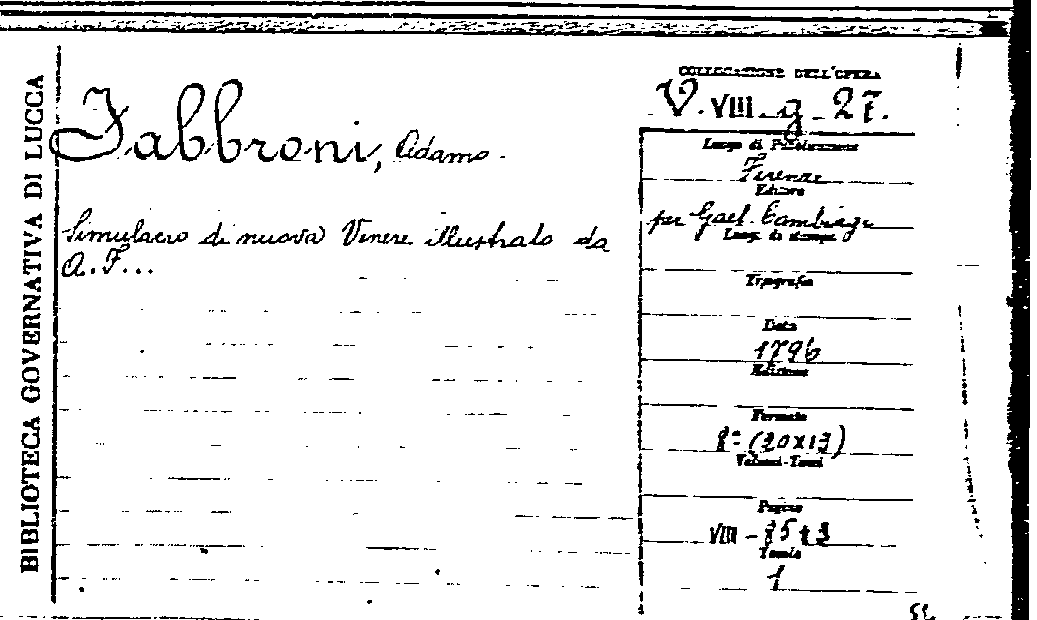 BIBLIOTECA GOVERNATIVA DI LUCCA
Fabbroni, Adamo.
Simulacro di nuova Venere illustrato da
A. F...
COLLOCAZIONE DELL'OPERA
V. VIII. g. 27.
Luogo di Pubblicazione
Firenze
Editore
per Gaet. Cambiagi
Luogo di stampa
Tipografia
Data
1796
Edizione
Formato
8º (20x13)
Volumi-Tomi
Pagine
VIII - 75 + 3
Tavole
1